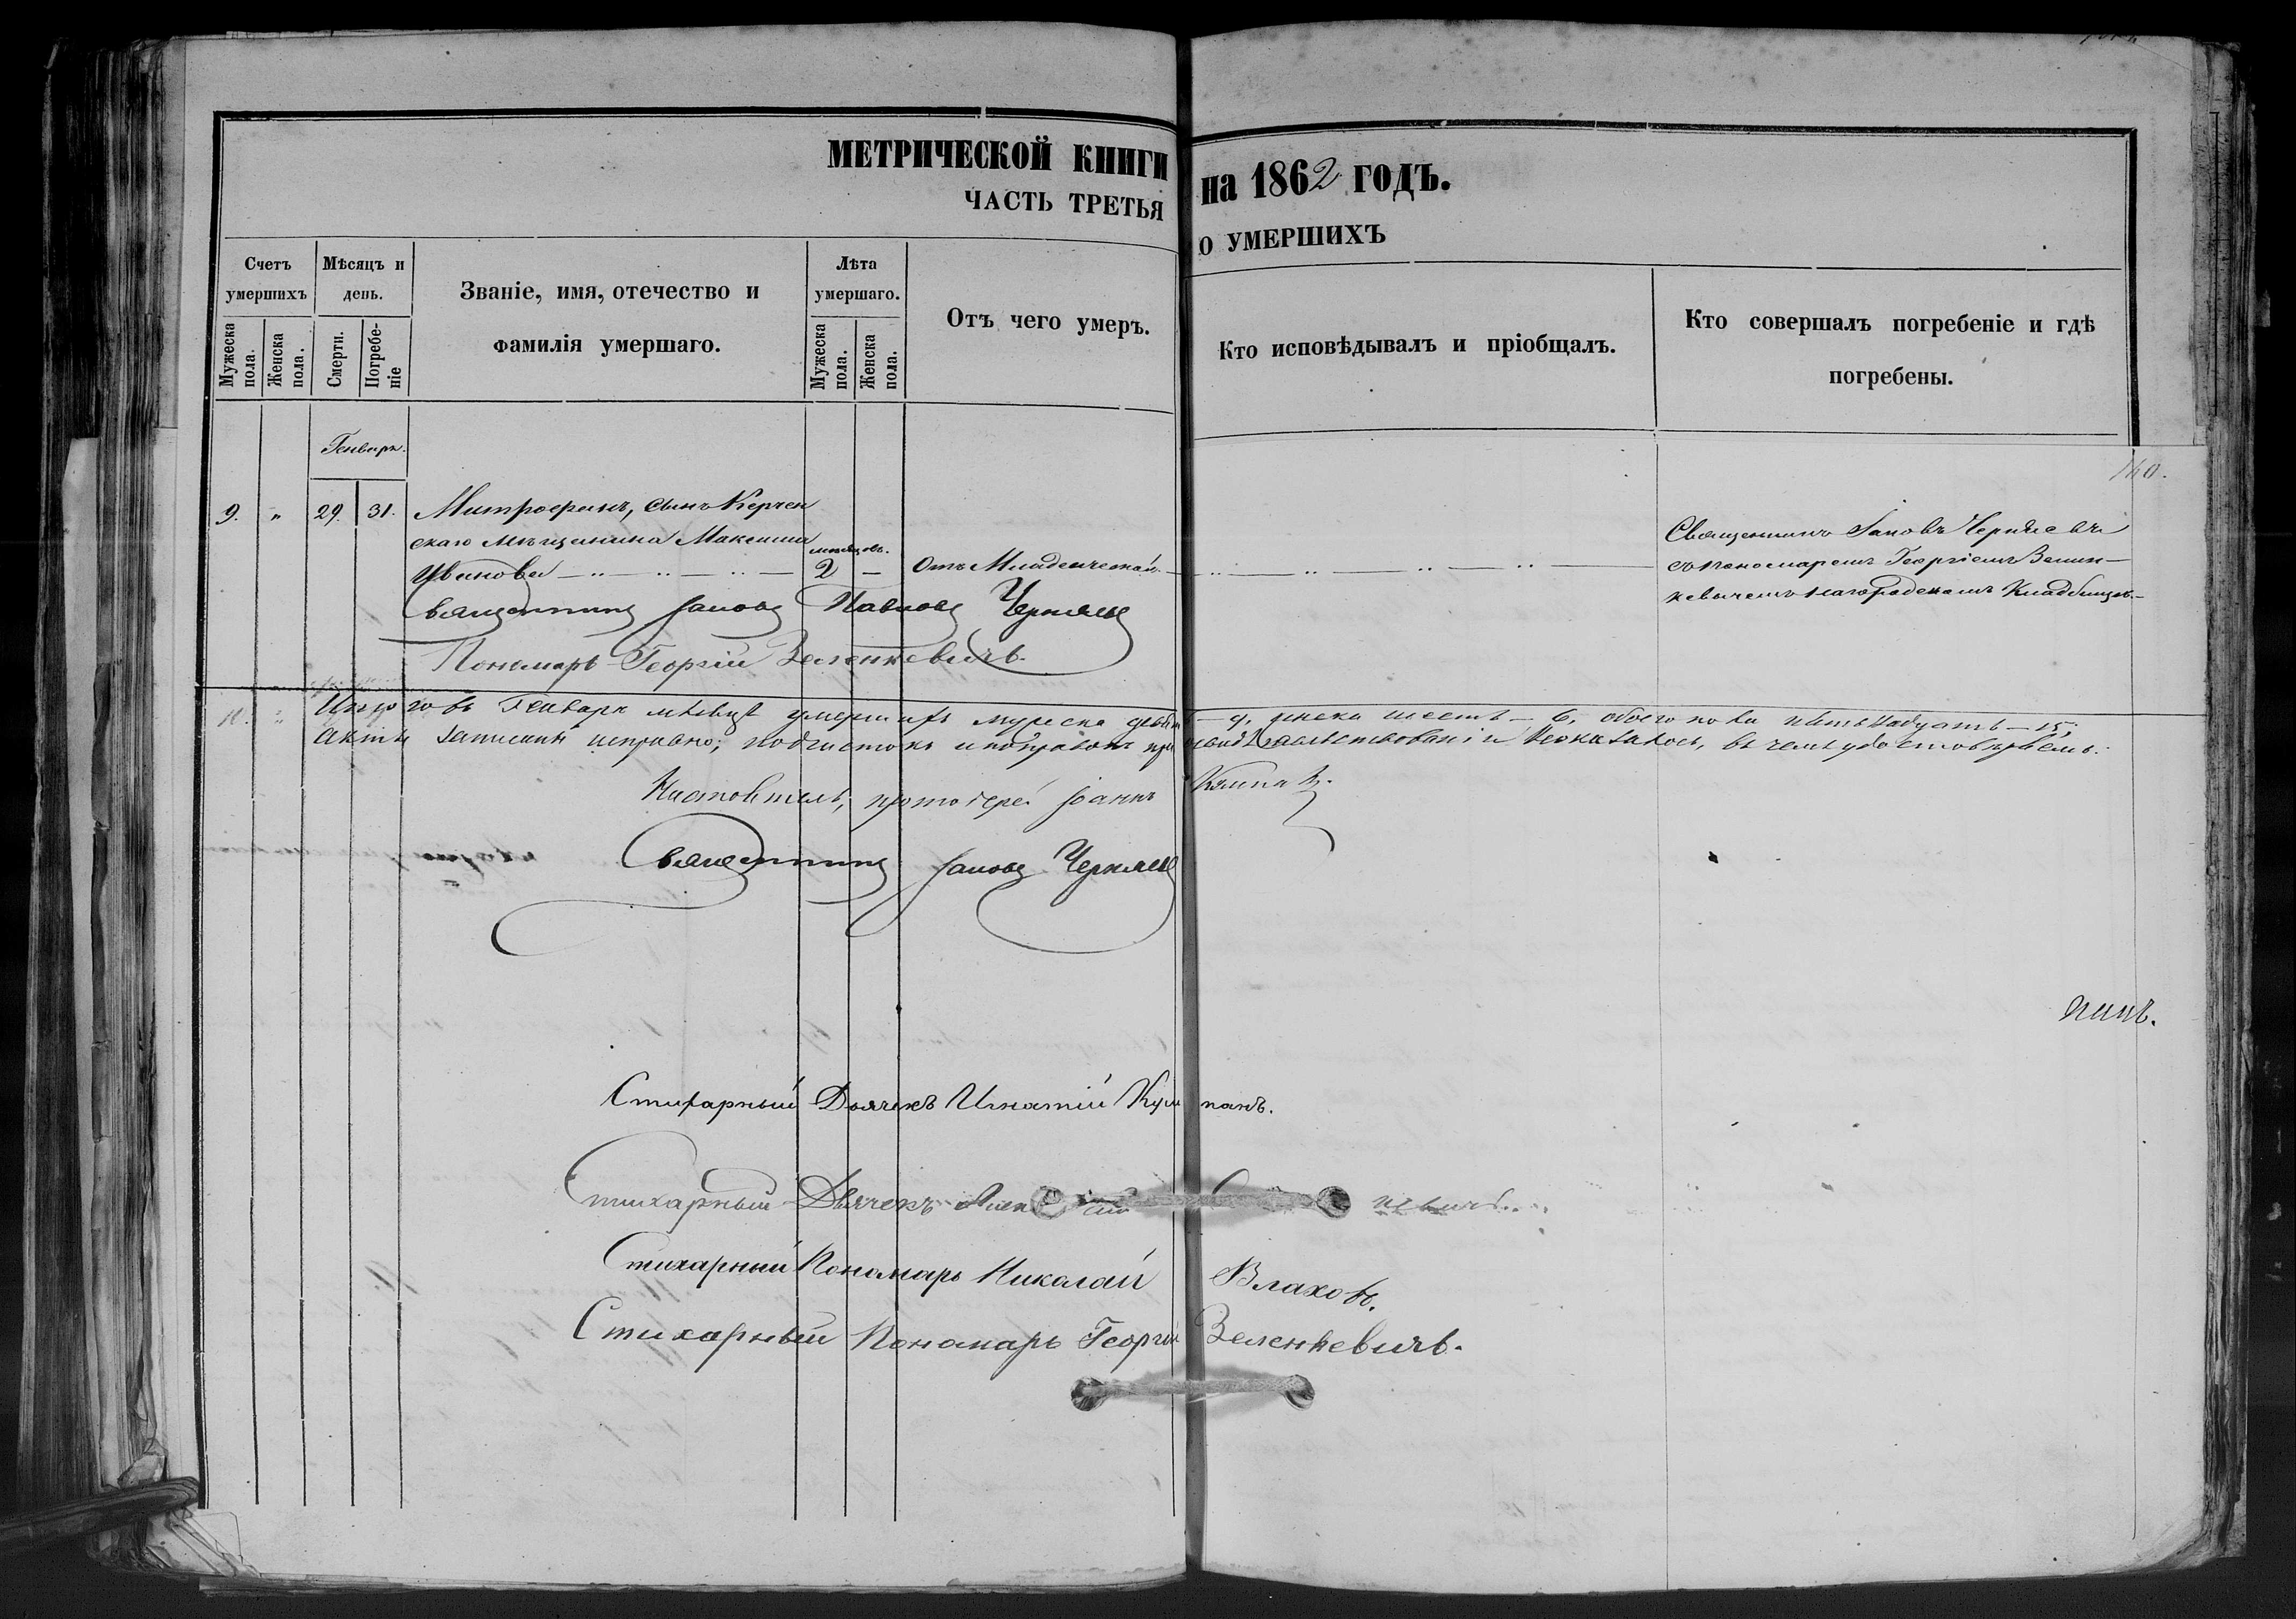 МЕТРИЧЕСКОЙ КНИГИ на 1862 ГОДЪ.
ЧАСТЬ ТРЕТЬЯ О УМЕРШИХЪ
Счетъ умершихъ
Мужеска пола.
Женска пола.
Мѣсяцъ и день.
Смерти.
Погребе-ніе
Званіе, имя, отечество и фамилія умершаго.
Лѣта умершаго.
Мужеска пола.
Женска пола.
Отъ чего умеръ.
Кто исповѣдывалъ и пріобщалъ.
Кто совершалъ погребеніе и гдѣ погребены.
Генварь.
140.
9. " 29. 31. Митрофанъ, сынъ Керчен
скаго мѣщанина Максима
мѣсяцовъ.
Иванова 2 — Отъ Младенческой
Священникъ Іаковъ Черняевъ
съ пономаремъ Георгіемъ Зелин-
кевичемъ на городскомъ Кладбищѣ.
Священникъ Іаковъ Павловъ Черняевъ
Пономарь Георгій Зеленкевичъ.
Итого въ Генварѣ мѣсяцѣ умершихъ мужеска девять — 9, женска шесть — 6, обоего пола пятьнадцать — 15;
Акты записаны исправно; подчистокъ и поправокъ при освидѣтельствованіи неоказалось, въ чемъ удостовѣряемъ:
Настоятель, протоіерей Іоаннъ
Священникъ Іаковъ Черняевъ
Стихарный Дьячекъ Игнатій
Стихарный Дьячекъ
Стихарный Пономарь Николай Влаховъ.
Стихарный Пономарь Георгій Зеленкевичъ.